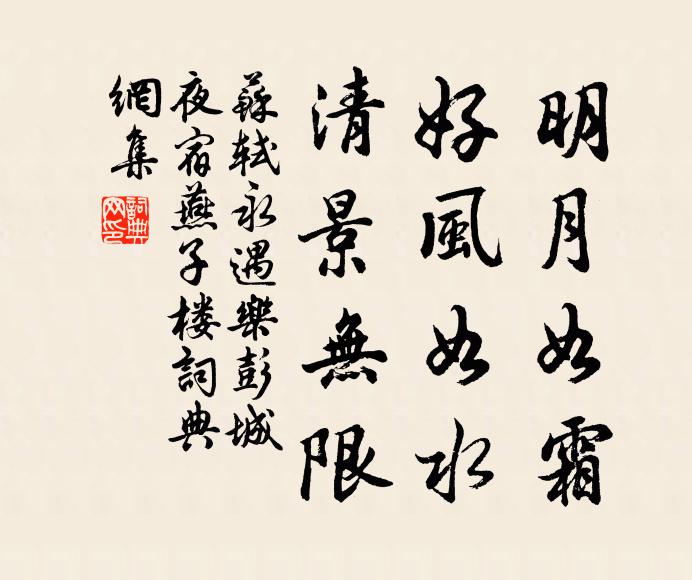 明月如霜
好風如水
清景無限
蘇軾永遇樂彭城
夜宿燕子樓詞典
網集
詞典
网印